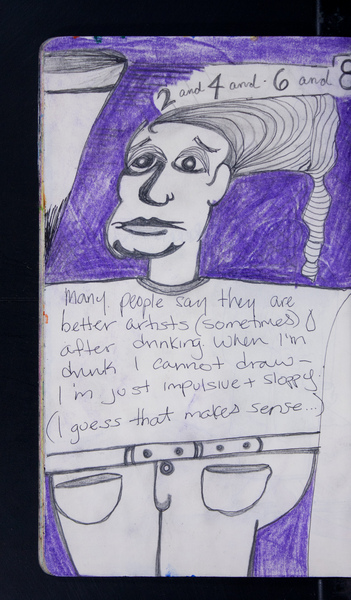 2 and 4 and 6 and 8
Many people say they are
better artists (sometimes)
after drinking. When I'm
drunk I cannot draw-
I'm just impulsive + sloppy.
(I guess that makes sense...)